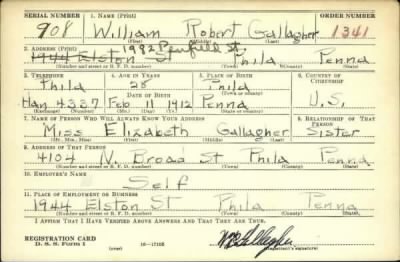 SERIAL NUMBER 1. NAME (Print) ORDER NUMBER
908 William Robert Gallagher 1341
(First) (Middle) (Last)
2. ADDRESS (Print) 1992 Penfield St.
1944 Elston St Phila Penna
(Number and street or R. F. D. number) (Town) (County) (State)
3. TELEPHONE 4. AGE IN YEARS 5. PLACE OF BIRTH 6. COUNTRY OF CITIZENSHIP
Phila 28 Phila
(Exchange) DATE OF BIRTH (Town or county)
Han 4337 Feb 11 1912 Penna U.S.
(Number) (Mo.) (Day) (Yr.) (State or country)
7. NAME OF PERSON WHO WILL ALWAYS KNOW YOUR ADDRESS 8. RELATIONSHIP OF THAT PERSON
Miss Elizabeth Gallagher Sister
(Mr., Mrs., Miss) (First) (Middle) (Last)
9. ADDRESS OF THAT PERSON
4104 N. Broad St Phila Penna
(Number and street or R. F. D. number) (Town) (County) (State)
10. EMPLOYER'S NAME
Self
11. PLACE OF EMPLOYMENT OR BUSINESS
1944 Elston St Phila Penna
(Number and street or R. F. D. number) (Town) (County) (State)
I AFFIRM THAT I HAVE VERIFIED ABOVE ANSWERS AND THAT THEY ARE TRUE.
REGISTRATION CARD
D. S. S. Form 1 (over) 16—17105 (Registrant's signature)